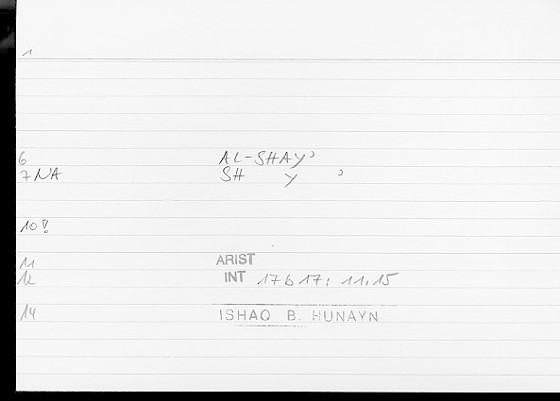 1
6 AL-SHAY'
7 NA SH Y '
10 !
11 ARIST
12 INT 17b17; 11.15
14 ISHAQ B. HUNAYN